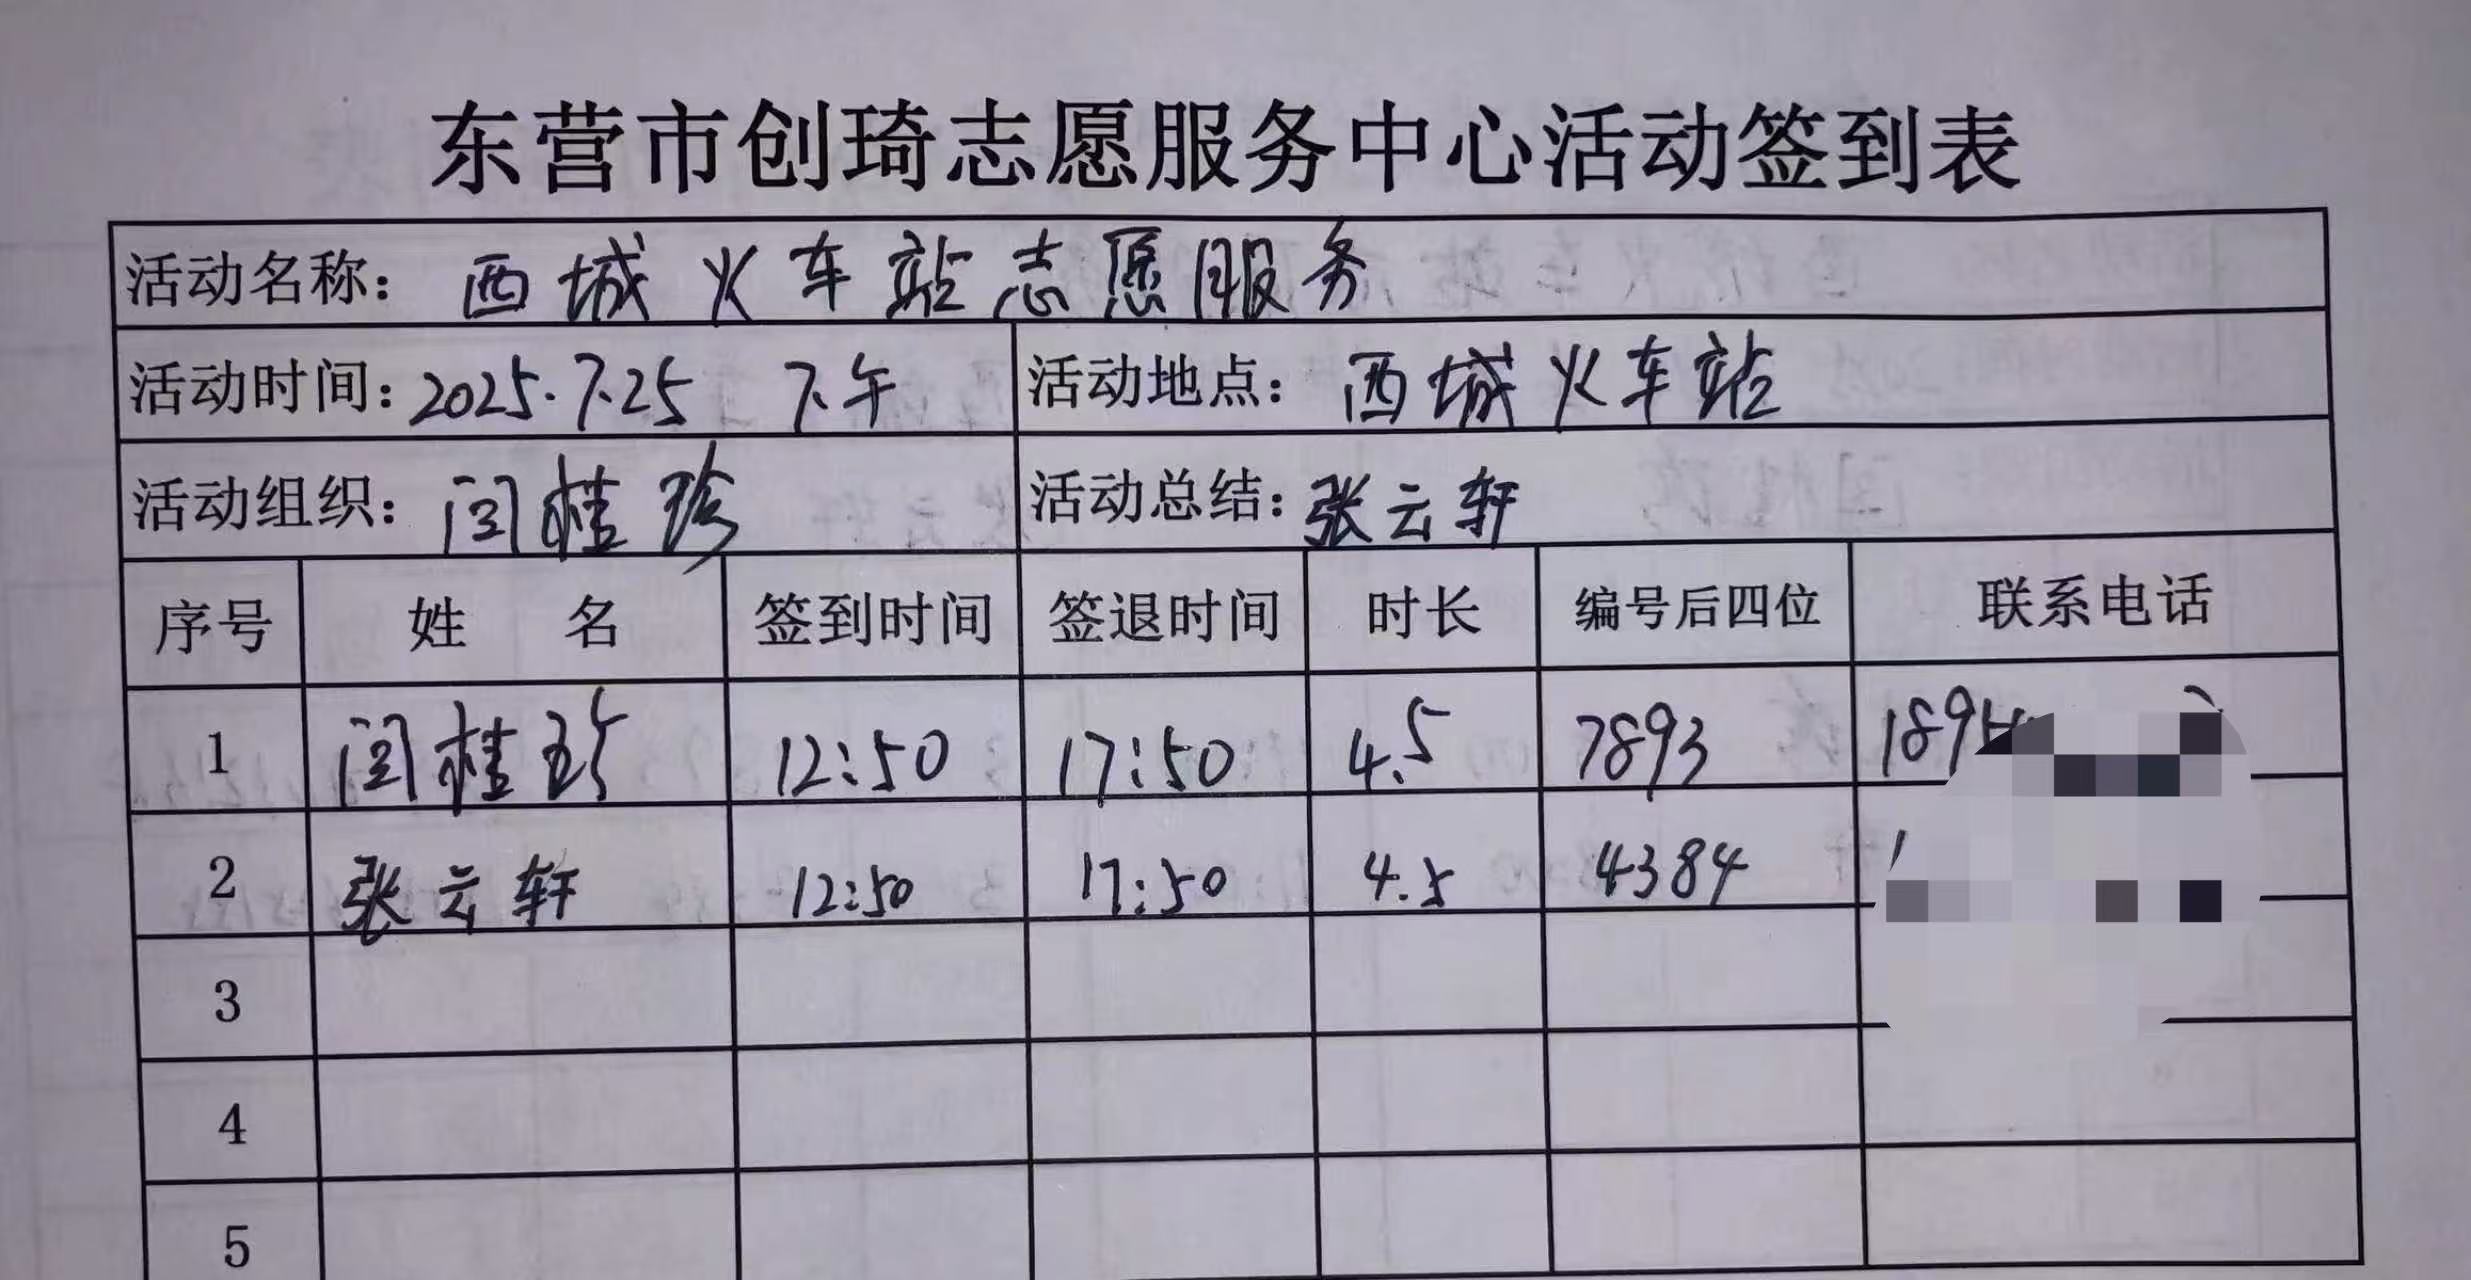 东营市创琦志愿服务中心活动签到表
活动名称: 西城火车站志愿服务
活动时间: 2025.7.25 下午 活动地点: 西城火车站
活动组织: 闫桂珍 活动总结: 张云轩
序号 姓 名 签到时间 签退时间 时长 编号后四位 联系电话
1 闫桂珍 12:50 17:50 4.5 7893 189
2 张云轩 12:50 17:50 4.5 4384 1
3
4
5